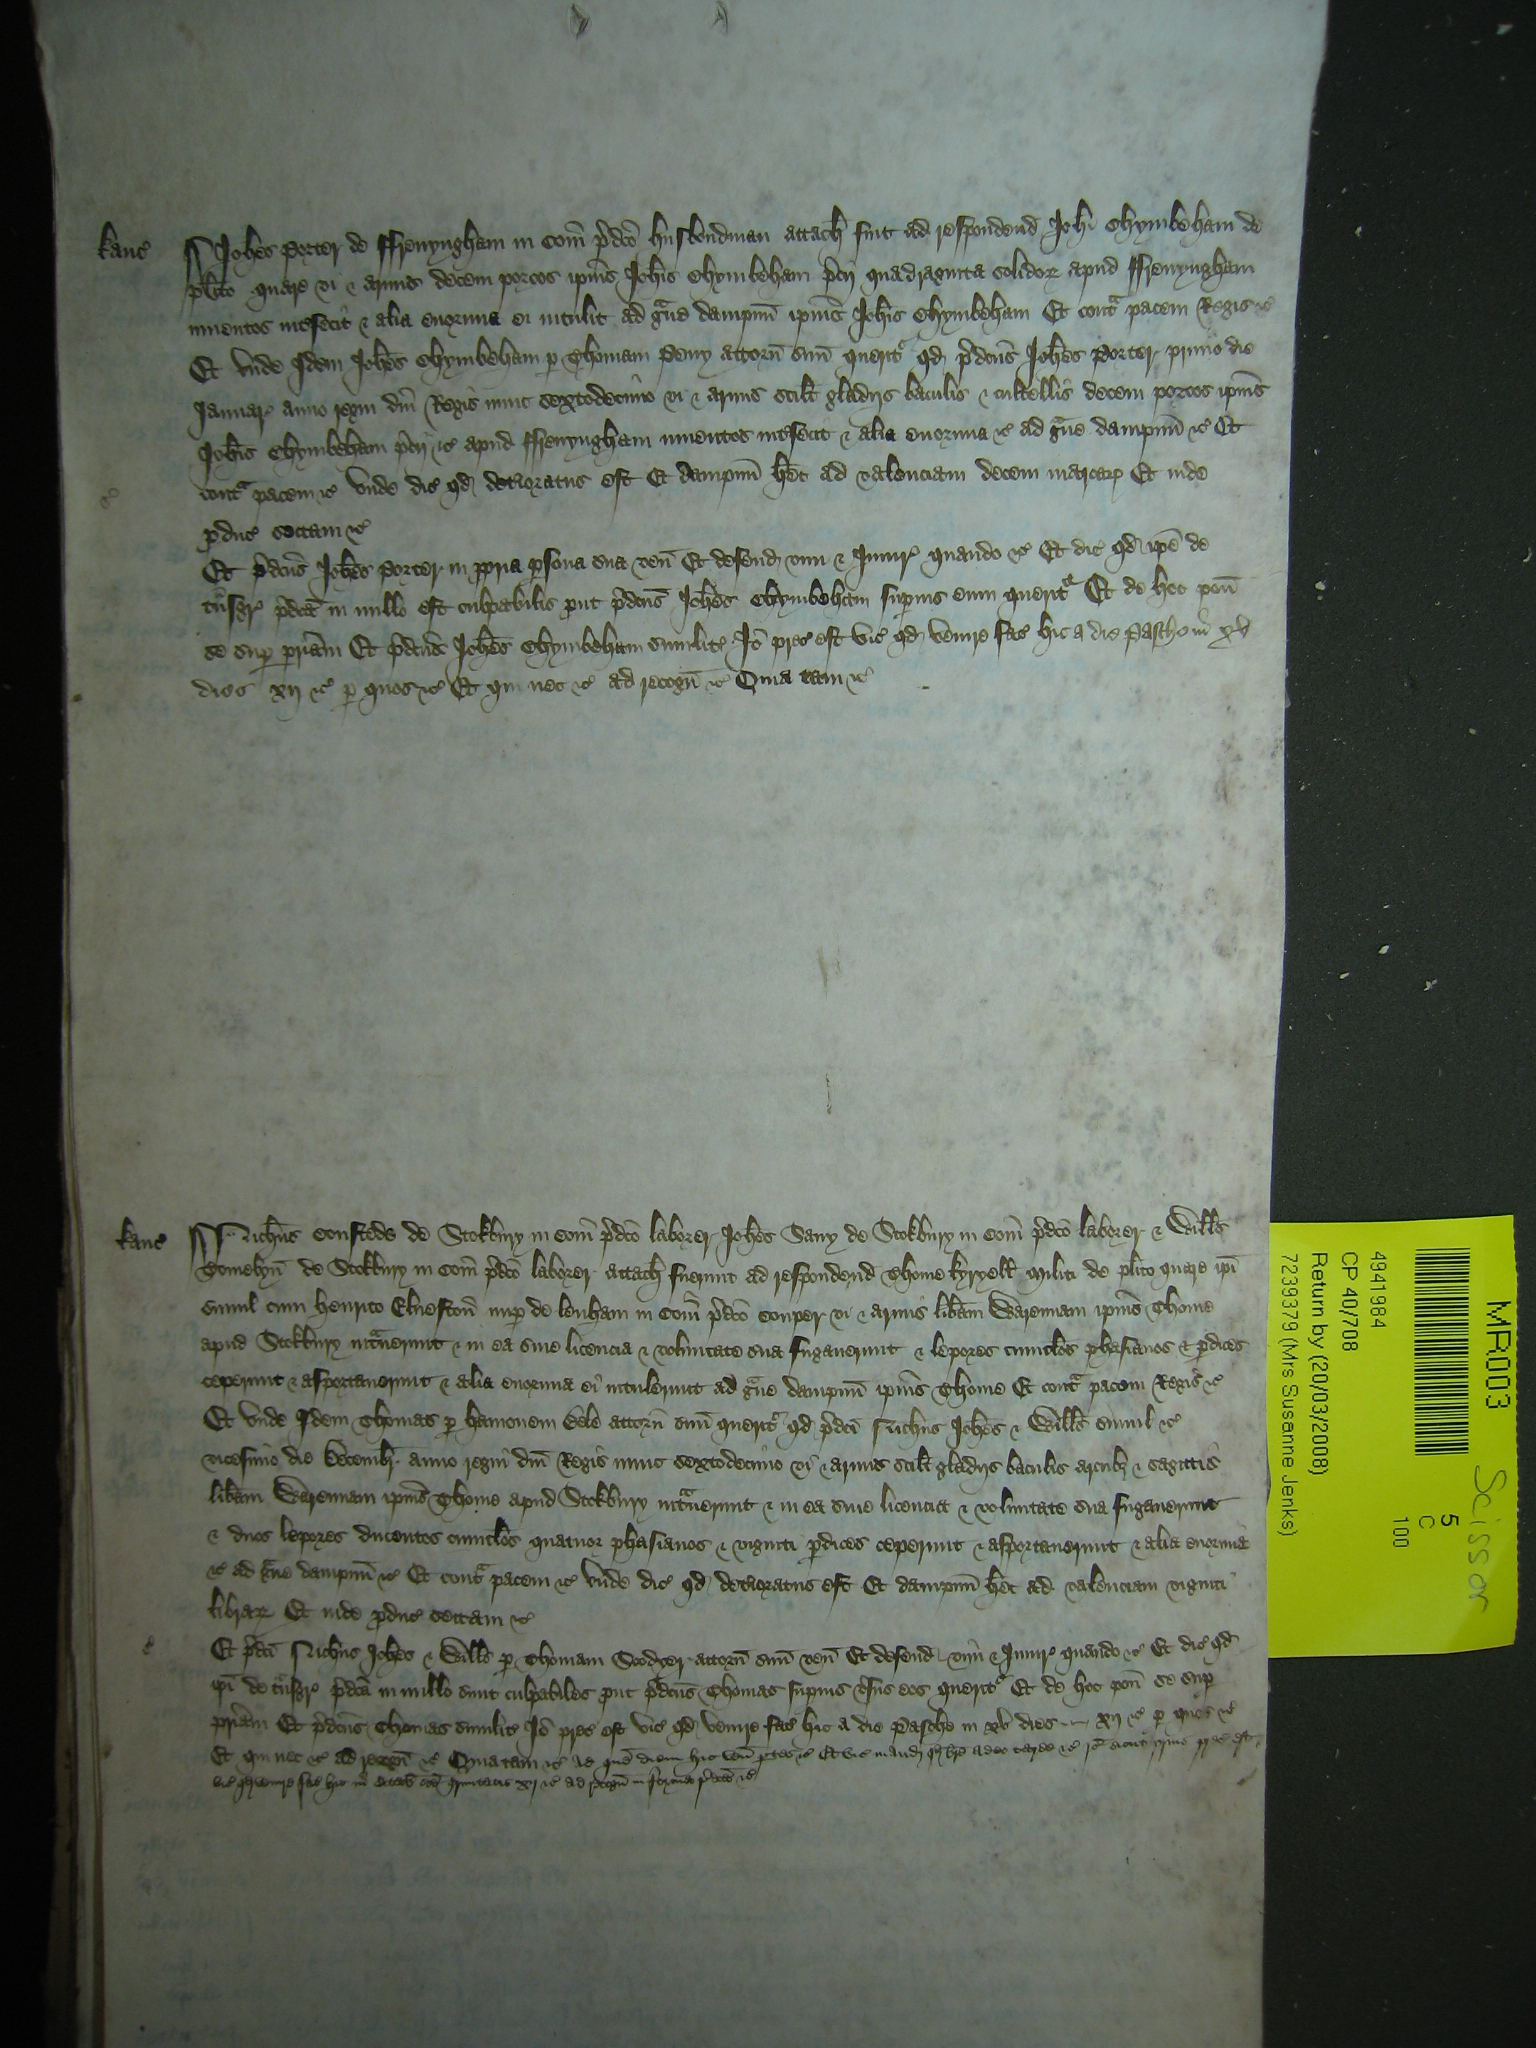 Kanc Johes Porter de Ffrenyngham in Com p̄dc̄o husbondman attach fuit ad respondend Johi Chymbeham de
pl̄ito quare vi & armis decem porcos ip̄ius Joh̄is Chymbeham p̄cij quadraginta solidoꝝ apud Ffrenyngham
inuentos int̄fecit & alia enormia ei intulit ad g̃ue dampnū ip̄ius Joh̄is Chymbeham Et cont̃ pacem Regis &c
Et vnde Idem Joh̄es Chymbeham p Thomam Peny attorn̄ suū querit̃ qd p̄dcūs Joh̄es Porter primo die
Januar anno regni dn̄i Regis nunc sextodecimo vi & armis scilt gladijs baculis & cultellis decem porcos ip̄ius
Joh̄is Chymbeham p̄cij &c apud Ffrenyngham inuentos int̄fecit & alia enormia &c ad g̃ue dampnū &c Et
cont̃ pacem &c vnde dic qd deterioratus est Et dampnū h̄et ad valenciam decem marcaꝝ Et inde
pduc sectam &c
Et p̄dcūs Joh̄es Porter in ppria psona sua ven̄ Et defend vim & Iniur quando &c Et dic qd ip̄e de
t̃nsgr p̄dcā in nullo est culpabilis put p̄dcūs Joh̄es Chymbeham superius eum querit̃ Et de hoc pon̄
se sup pr̄iam Et p̄dcūs Joh̄es Chymbeham similit̄ Iō prec est vic qd venire fac hic a die Pasche in xv
dies xij &c p quos &c Et qui nec &c ad recogn̄ &c Quia tam &c
Kanc Nich̄us Confteds de Stokbury in Com̄ p̄dc̄o laborer Joh̄es Sany de Stokbury in Com̄ p̄dc̄o laborer & Will̄s
Tomelyn̄ de Stokbury in Com̄ p̄dc̄o laborer attach fuerunt ad respondend Thome Kyryell Militi de pl̄ito quare ip̄i
simul cum Henrico Elneston̄ nup de Lenham in Com̄ p̄dc̄o Couper vi & armis lib̄am Warennam ip̄ius Thome
apud Stokbury int̃uerunt & in ea sine licencia & voluntate sua fugauerunt & lepores cunicl̄os phasianos & pdices
ceperunt & asportauerunt & alia enormia ei intulerunt ad g̃ue dampnū ip̄ius Thome Et cont̃ pacem Regis &c
Et vnde Idem Thomas p Hamonem Bele attorn̄ suū querit̃ qd p̄dcī Nich̄us Joh̄es & Will̄s simul &c
vicesimo die Decembr anno regni dn̄i Regis nunc sextodecimo vi & armis scilt gladijs baculis arcubȝ & sagittis
lib̄am Warennam ip̄ius Thome apud Stokbury int̃uerunt & in ea sine licencia & voluntate sua fugauerunt
& duos lepores ducentos cunicl̄os quatuor phasianos & viginti pdices ceperunt & asportauerunt & alia enormia
&c ad g̃ue dampnū &c Et cont̃ pacem &c vnde dic qd deterioratus est Et dampnū h̄et ad valenciam viginti
libraꝝ Et inde pduc sectam &c
Et p̄dcī Nich̄us Joh̄es & Will̄s p Thomam Woodyer attorn̄ suū ven̄ Et defend vim & Iniur quando &c Et dic qd
ip̄i de t̃nsgr p̄dcā in nullo sunt culpabiles put p̄dcūs Thomas superius v̄sus eos querit̃ Et de hoc pon̄ se sup
pr̄iam Et p̄dcūs Thomas similit̄ Iō prec est vic qd venire fac hic a die Pasche in xv dies xij &c p quos &c
Et qui nec &c ad recogn̄ &c Quia tam &c Ad quē diem hic ven̄ ptes &c Et vic mand qd bre adeo tarde &c Iō sicut prius prec est
vic qd venire fac hic in Octab̄ sc̄e Trinitatis xij &c ad recogn̄ in forma p̄dcā &c
MR003
Scissor
5
C
100
4941984
CP 40/708
Return by (20/03/2008)
7239379 (Mrs Susanne Jenks)